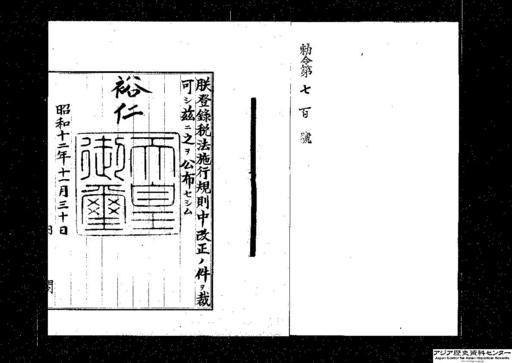 勅令第七百號
朕登錄税法施行規則中改正ノ件ヲ裁
可シ茲ニ之ヲ公布セシム
裕仁
天皇御璽
昭和十二年十一月三十日
アジア歴史資料センター
Japan Center for Asian Historical Records